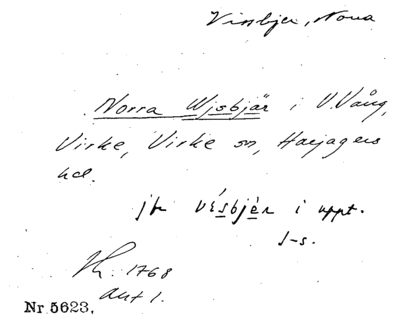 Vissbjer, Norra
Norra Wjsbjär i V. Vång,
Virke, Virke sn, Harjagers
hd.
jfr vésbjèr i uppt.
J-s.
1768
akt 1.
Nr 5623.